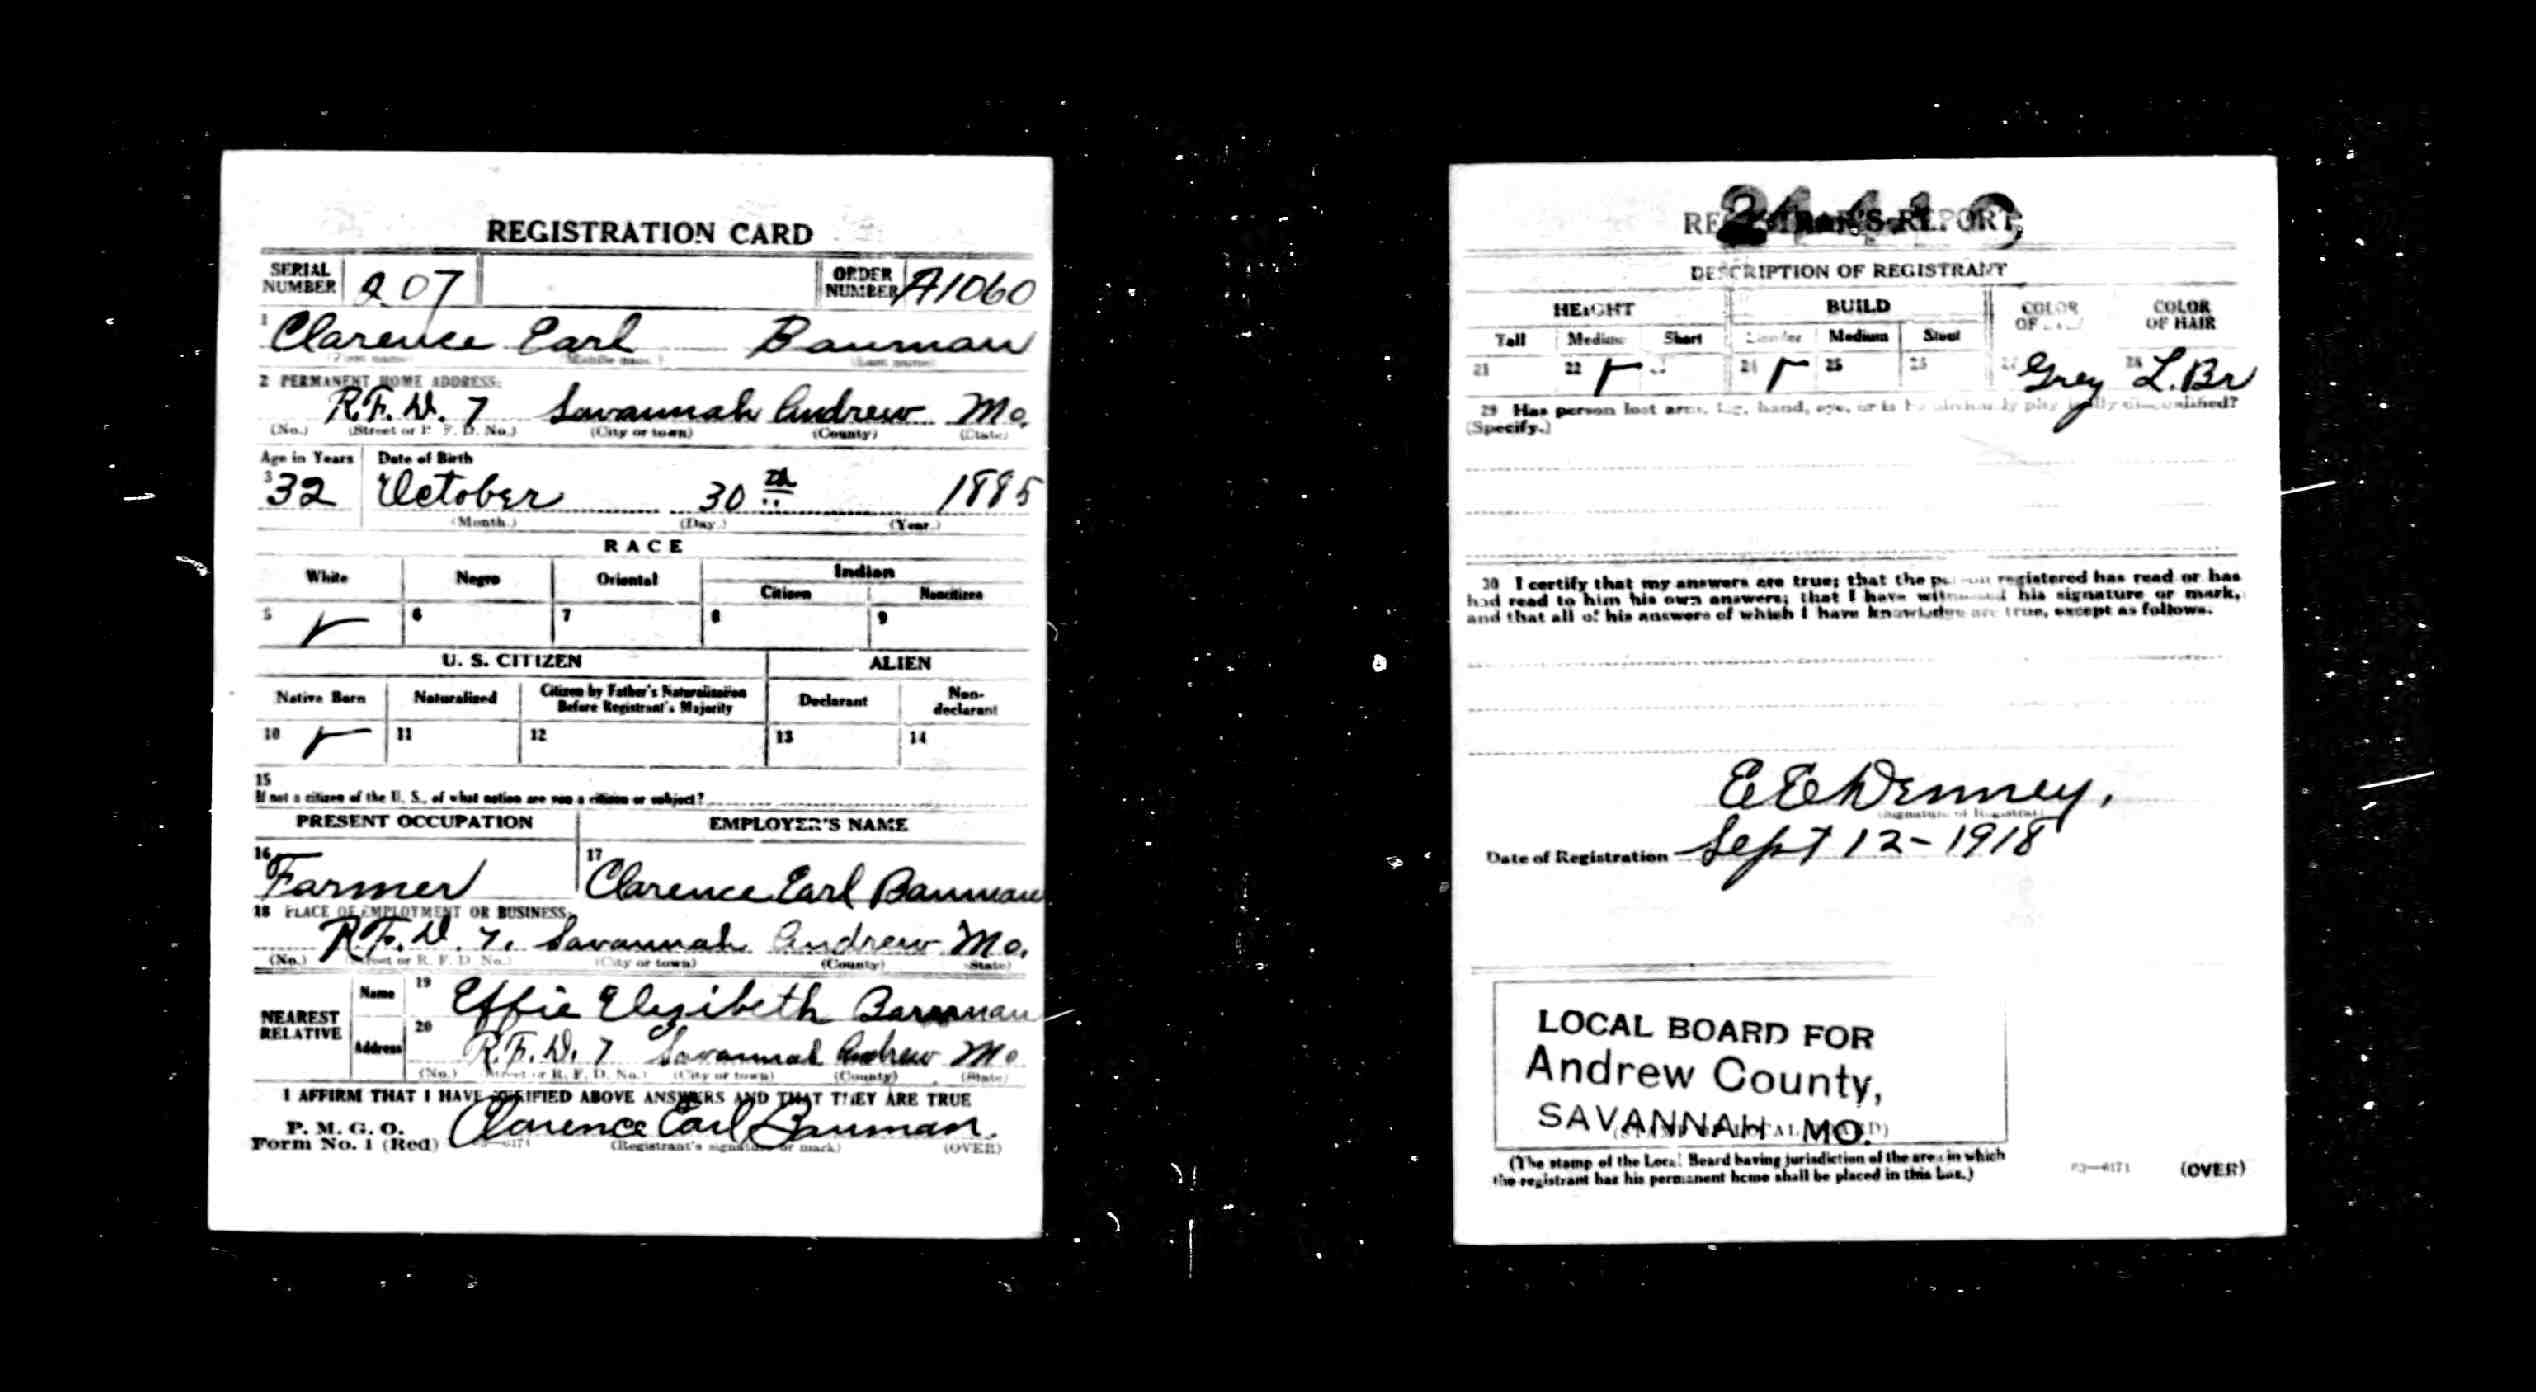 REGISTRATION CARD
SERIAL NUMBER 207 ORDER NUMBER A1060
1 Clarence Earl Bauman
(First name) (Middle name) (Last name)
2 PERMANENT HOME ADDRESS:
R.F.D. 7 Savannah Andrew Mo.
(No.) (Street or R. F. D. No.) (City or town) (County) (State)
Age in Years Date of Birth
3 32 October 30th 1885
(Month.) (Day.) (Year.)
RACE
White Negro Oriental Indian
Citizen Noncitizen
5 ✓ 6 7 8 9
U. S. CITIZEN ALIEN
Native Born Naturalized Citizen by Father's Naturalization Before Registrant's Majority Declarant Non-declarant
10 ✓ 11 12 13 14
15
If not a citizen of the U. S., of what nation are you a citizen or subject?
PRESENT OCCUPATION EMPLOYER'S NAME
16 Farmer 17 Clarence Earl Bauman
18 PLACE OF EMPLOYMENT OR BUSINESS:
R.F.D. 7. Savannah Andrew Mo.
(No.) (Street or R. F. D. No.) (City or town) (County) (State)
NEAREST RELATIVE Name 19 Effie Elizibeth Bauman
Address 20 R.F.D. 7 Savannah Andrew Mo
(No.) (Street or R. F. D. No.) (City or town) (County) (State)
I AFFIRM THAT I HAVE VERIFIED ABOVE ANSWERS AND THAT THEY ARE TRUE
P. M. G. O.
Form No. 1 (Red) Clarence Earl Bauman.
(Registrant's signature or mark) (OVER)
REGISTRAR'S REPORT
DESCRIPTION OF REGISTRANT
HEIGHT BUILD COLOR OF EYES COLOR OF HAIR
Tall Medium Short Slender Medium Stout
21 22 ✓ 24 ✓ 25 26 27 Grey 28 L. Br
29 Has person lost arm, leg, hand, eye, or is he obviously physically disqualified?
(Specify.)
30 I certify that my answers are true; that the person registered has read or has
had read to him his own answers; that I have witnessed his signature or mark,
and that all of his answers of which I have knowledge are true, except as follows.
E E Denney,
(Signature of Registrar)
Date of Registration Sept 12-1918
LOCAL BOARD FOR
Andrew County,
SAVANNAH MO.
(The stamp of the Local Board having jurisdiction of the area in which
the registrant has his permanent home shall be placed in this box.)
03—6171 (OVER)